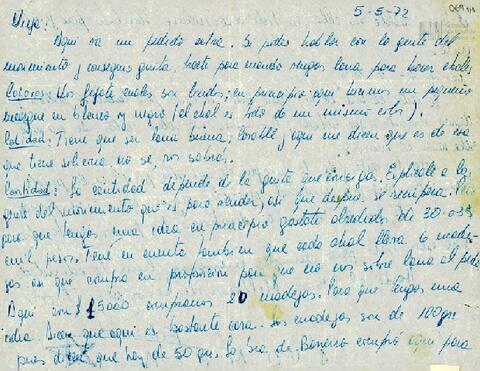 5-5-72
Vieja
Aquí va un pedido extra. Si podés hablar con la gente del
movimiento y conseguís guita, hacete para mandarnos lana para hacer chales
Colores: Los fijate cuales son lindos; en principio aquí tenemos un pequeño
en blanco y negro (el chal es todo de un mismo color).
Calidad: Tiene que ser lana buena, lavable, aquí me dicen que es de esa
que tiene no sé, vos sabrás.
Cantidad: La cantidad depende de la guita que consigas. Explicále a la
gente del movimiento que es para vender, así que después se recupera. Para
para que tengas una idea en principio gastate alrededor de 30 o 35
mil pesos. Tené en cuenta también que cada chal lleva 6 made-
jas así que compra en proporción para que no nos sobre lana al pedo
Aquí con $15000 compramos 20 madejas. Para que tengas una
idea. Dicen que aquí es bastante cara. Las madejas son de 100 grs
pues dicen que hay de 50 grs. La Sra de compró aquí para